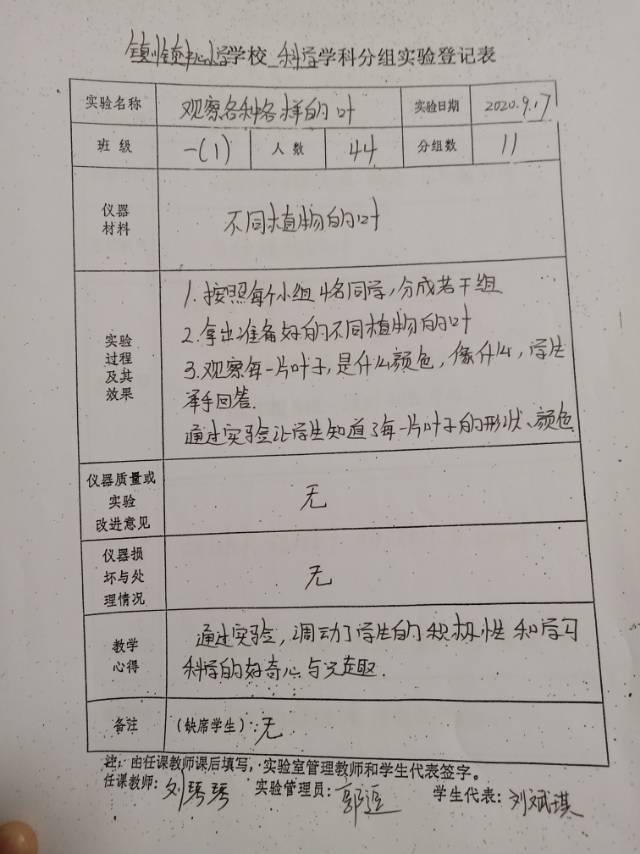 镇川镇中心小学学校 科学学科分组实验登记表
实验名称 观察各种各样的叶 实验日期 2020.9.17
班级 一(1) 人数 44 分组数 11
仪器
材料
不同植物的叶
实验
过程
及其
效果
1.按照每个小组4名同学,分成若干组
2.拿出准备好的不同植物的叶
3.观察每一片叶子,是什么颜色,像什么,学生
举手回答.
通过实验让学生知道了每一片叶子的形状、颜色
仪器质量或
实验
改进意见
无
仪器损
坏与处
理情况
无
教学
心得
通过实验,调动了学生的积极性和学习
科学的好奇心与兴趣.
备注 (缺席学生):无
注:由任课教师课后填写,实验室管理教师和学生代表签字。
任课教师:刘琴琴 实验管理员:郭 学生代表:刘斌琪